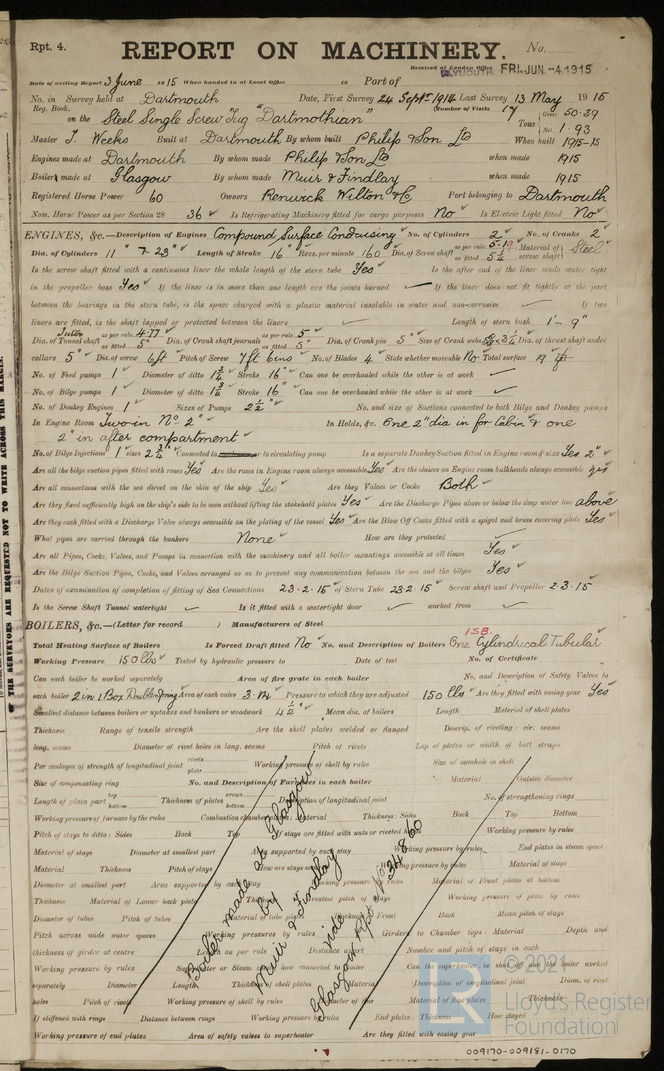 Rpt. 4.
REPORT ON MACHINERY.
No.
Received at London Office
PLYMOUTH FRI. JUN -4 1915
Date of writing Report 3 June 1915 When handed in at Local Office 19 Port of
No. in Survey held at Dartmouth Date, First Survey 24 Sept 1914 Last Survey 13 May 1915
Reg. Book. Number of Visits 17
on the Steel Single Screw Tug "Dartmothian" Tons Gross 50.39 Net 1.93
Master J. Weeks Built at Dartmouth By whom built Philip & Son Ld When built 1915-15
Engines made at Dartmouth By whom made Philip & Son Ld when made 1915
Boiler made at Glasgow By whom made Muir & Findlay when made 1915
Registered Horse Power 60 Owners Renwick Wilton & Co Port belonging to Dartmouth
Nom. Horse Power as per Section 28 36 Is Refrigerating Machinery fitted for cargo purposes No Is Electric Light fitted No
ENGINES, &c.—Description of Engines Compound Surface Condensing No. of Cylinders 2 No. of Cranks 2
Dia. of Cylinders 11" & 23" Length of Stroke 16" Revs. per minute 160 Dia. of Screw shaft as per rule 5.19 as fitted 5 1/4 Material of screw shaft Steel
Is the screw shaft fitted with a continuous liner the whole length of the stern tube Yes Is the after end of the liner made water tight
in the propeller boss Yes If the liner is in more than one length are the joints burned If the liner does not fit tightly at the part
between the bearings in the stern tube, is the space charged with a plastic material insoluble in water and non-corrosive If two
liners are fitted, is the shaft lapped or protected between the liners Length of stern bush 1'-9"
Dia. of Tunnel shaft Inter as per rule 4.77 as fitted 5" Dia. of Crank shaft journals as per rule 5" as fitted 5" Dia. of Crank pin 5" Size of Crank webs Dia. of thrust shaft under
collars 5" Dia. of screw 6ft Pitch of Screw 7ft 6ins No. of Blades 4 State whether moveable No Total surface 9
No. of Feed pumps 1 Diameter of ditto 1 3/4 Stroke 16" Can one be overhauled while the other is at work
No. of Bilge pumps 1 Diameter of ditto 1 3/4 Stroke 16" Can one be overhauled while the other is at work
No. of Donkey Engines 1 Sizes of Pumps 2 1/2" No. and size of Suctions connected to both Bilge and Donkey pumps
In Engine Room Two in No 2" In Holds, &c. One 2" dia in for Cabin & one
2" in after compartment
No. of Bilge Injections 1 sizes 2 3/4" Connected to or to circulating pump Is a separate Donkey Suction fitted in Engine room & size Yes 2"
Are all the bilge suction pipes fitted with roses Yes Are the roses in Engine room always accessible Yes Are the sluices on Engine room bulkheads always accessible yes
Are all connections with the sea direct on the skin of the ship Yes Are they Valves or Cocks Both
Are they fixed sufficiently high on the ship's side to be seen without lifting the stokehold plates Yes Are the Discharge Pipes above or below the deep water line above
Are they each fitted with a Discharge Valve always accessible on the plating of the vessel Yes Are the Blow Off Cocks fitted with a spigot and brass covering plate Yes
What pipes are carried through the bunkers None How are they protected
Are all Pipes, Cocks, Valves, and Pumps in connection with the machinery and all boiler mountings accessible at all times Yes
Are the Bilge Suction Pipes, Cocks, and Valves arranged so as to prevent any communication between the sea and the bilges Yes
Dates of examination of completion of fitting of Sea Connections 23.2.15 of Stern Tube 23.2.15 Screw shaft and Propeller 2.3.15
Is the Screw Shaft Tunnel watertight Is it fitted with a watertight door worked from
BOILERS, &c.—(Letter for record ) Manufacturers of Steel
1SB
Total Heating Surface of Boilers Is Forced Draft fitted No No. and Description of Boilers One Cylindrical Tubular
Working Pressure 150 lbs Tested by hydraulic pressure to Date of test No. of Certificate
Can each boiler be worked separately Area of fire grate in each boiler No. and Description of Safety Valves to
each boiler 2 in 1 Box Double Spring Area of each valve 3.14 Pressure to which they are adjusted 150 lbs Are they fitted with easing gear Yes
Smallest distance between boilers or uptakes and bunkers or woodwork 4 1/2" Mean dia. of boilers Length Material of shell plates
Thickness Range of tensile strength Are the shell plates welded or flanged Descrip. of riveting: cir. seams
long. seams Diameter of rivet holes in long. seams Pitch of rivets Lap of plates or width of butt straps
Per centages of strength of longitudinal joint rivets plate Working pressure of shell by rules Size of manhole in shell
Size of compensating ring No. and Description of Furnaces in each boiler Material Outside diameter
Length of plain part top bottom Thickness of plates crown bottom Description of longitudinal joint No. of strengthening rings
Working pressure of furnace by the rules Combustion chamber plates: Material Thickness: Sides Back Top Bottom
Pitch of stays to ditto: Sides Back Top If stays are fitted with nuts or riveted heads Working pressure by rules
Material of stays Diameter at smallest part Area supported by each stay Working pressure by rules End plates in steam space
Material Thickness Pitch of stays How are stays Working pressure by rules Material of stays
Diameter at smallest part Area supported by each stay Working pressure by rules Material of Front plates at bottom
Thickness Material of Lower back plate Thickness Greatest pitch of stays Working pressure of plate by rules
Diameter of tubes Pitch of tubes Material of tube plates Thickness: Front Back Mean pitch of stays
Pitch across wide water spaces Working pressures by rules Girders to Chamber tops: Material Depth and
thickness of girder at centre Length as per rule Distance apart Number and pitch of stays in each
Working pressure by rules Superheater or Steam chest; how connected to boiler Can the superheater be shut off and the boiler worked
separately Diameter Length Thickness of shell plates Material Description of longitudinal joint Diam. of rivet
holes Pitch of rivets Working pressure of shell by rules Diameter of flue Material of flue plates Thickness
If stiffened with rings Distance between rings Working pressure by rules End plates: Thickness How stayed
Working pressure of end plates Area of safety valves to superheater Are they fitted with easing gear
Boiler made at Glasgow
by
Muir & Findlay
vide
Glasgow Rpt No 34860
OF THE SURVEYORS ARE REQUESTED NOT TO WRITE ACROSS THIS MARGIN.
© 2021
Lloyd's Register
Foundation
009170-009181-0170